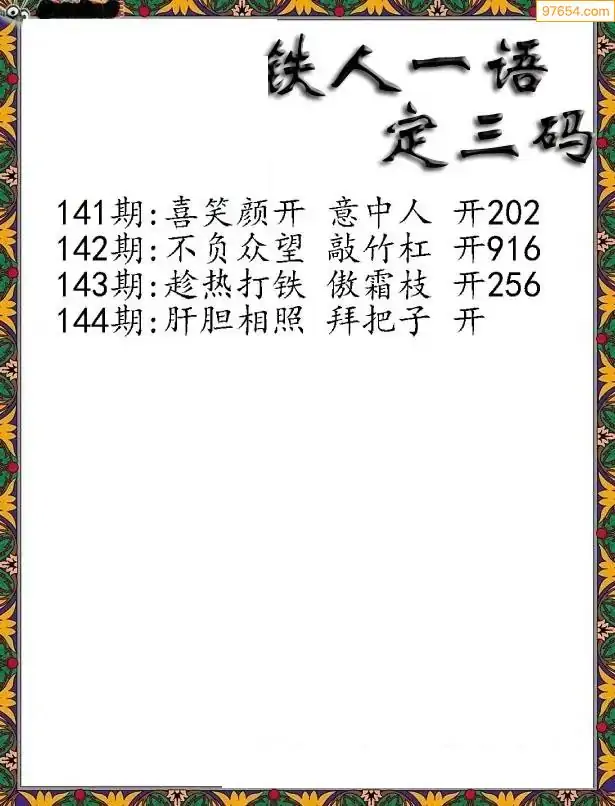 97654.com
铁人一语
定三码
141期:喜笑颜开 意中人 开202
142期:不负众望 敲竹杠 开916
143期:趁热打铁 傲霜枝 开256
144期:肝胆相照 拜把子 开